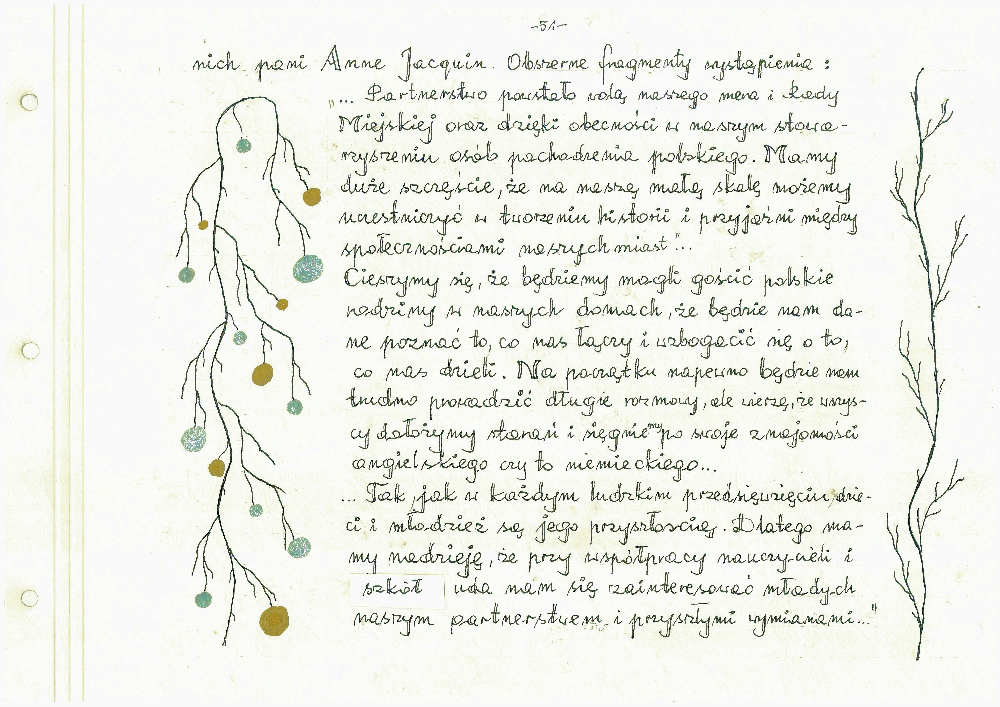 -51-
nich pani Anne Jacquin. Obszerne fragmenty wystąpienia :
„... Partnerstwo powstało wolą naszego mera i Rady
Miejskiej oraz dzięki obecności w naszym stowa-
rzyszeniu osób pochodzenia polskiego. Mamy
duże szczęście, że na naszą małą skalę możemy
uczestniczyć w tworzeniu historii i przyjaźni między
społecznościami naszych miast"...
Cieszymy się, że będziemy mogli gościć polskie
rodziny w naszych domach, że będzie nam da-
ne poznać to, co nas łączy i wzbogacić się o to,
co nas dzieli. Na początku napewno będzie nam
trudno prowadzić długie rozmowy, ale wierzę, że wszys-
cy dołożymy starań i sięgniemy po swoje znajomości
angielskiego czy to niemieckiego...
... Tak, jak w każdym ludzkim przedsięwzięciu, dzie-
ci i młodzież są jego przyszłością. Dlatego ma-
my nadzieję, że przy współpracy nauczycieli i
szkół uda nam się zainteresować młodych
naszym partnerstwem i przyszłymi wymianami..."